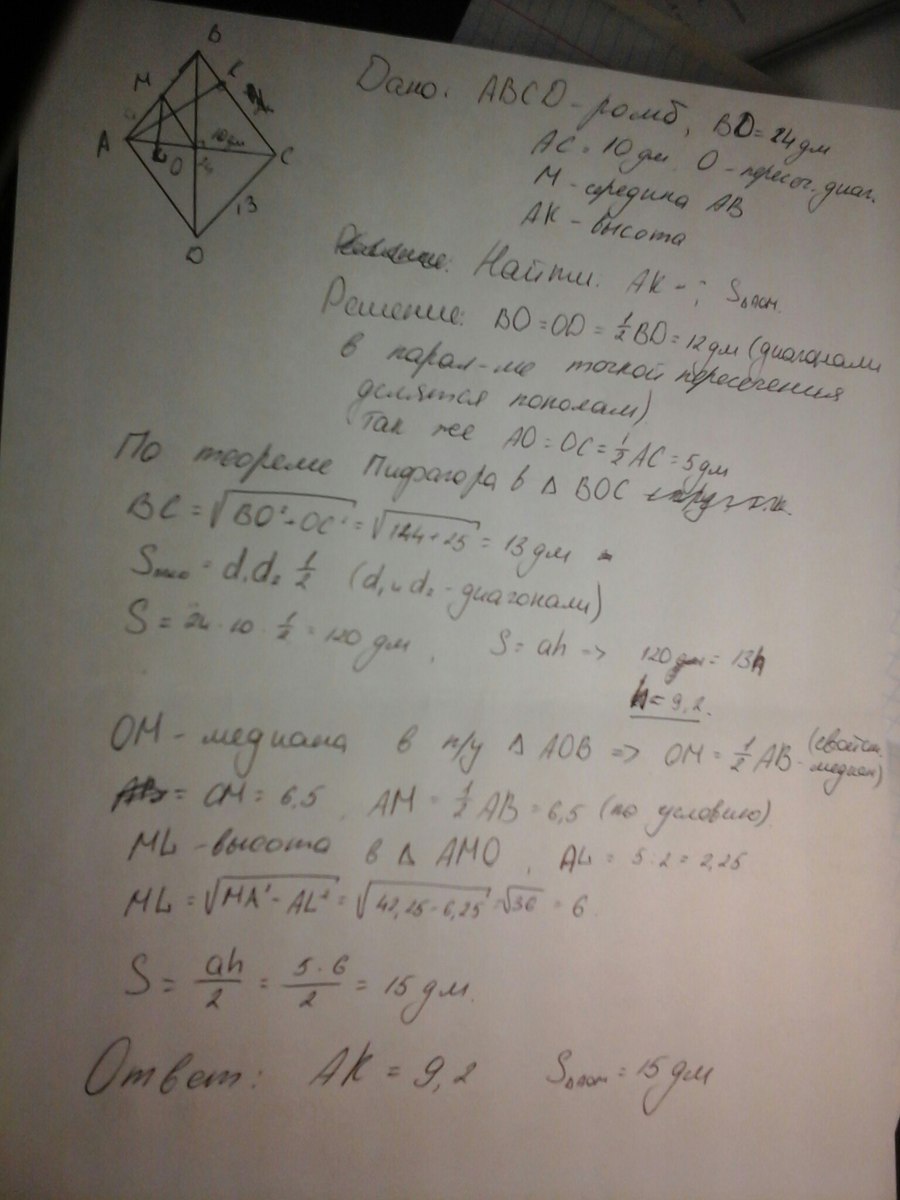 B
M
K
A
a
10дм
C
O
24
13
D
Дано: ABCD - ромб, BD = 24 дм
AC = 10 дм. O - пересеч. диаг.
M - середина AB
AK - высота
Найти: AK - ; S△AOM.
Решение: BO = OD = 1/2 BD = 12 дм (диагонали
в парал-ме точкой пересечения
делятся пополам)
Так же AO = OC = 1/2 AC = 5 дм
По теореме Пифагора в △ BOC
BC = √BO² + OC² = √144 + 25 = 13 дм
S = d₁d₂ 1/2 (d₁ и d₂ - диагонали)
S = 24 · 10 · 1/2 = 120 дм, S = ah => 120 дм = 13h
h = 9,2.
OM - медиана в п/у △ AOB => OM = 1/2 AB - (свойст. медиан)
= OM = 6,5, AM = 1/2 AB = 6,5 (по условию)
ML - высота в △ AMO, AL = 5 : 2 = 2,25
ML = √MA² - AL² = √42,25 - 6,25 = √36 = 6
S = ah/2 = 5 · 6/2 = 15 дм.
Ответ: AK = 9,2 S△AOM = 15 дм